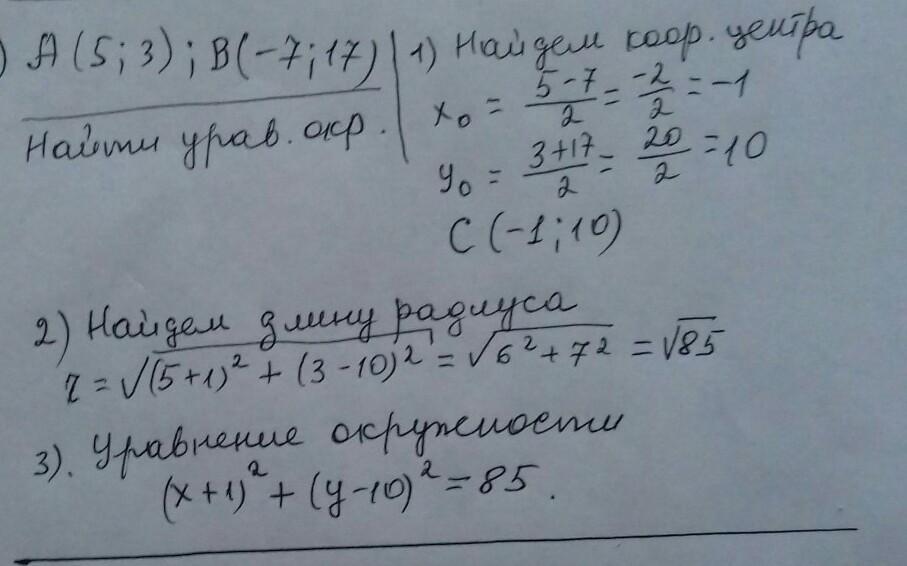 ) A(5;3); B(-7;17)
Найти урав. окр.
1) Найдем коор. центра
x₀ = (5-7)/2 = -2/2 = -1
y₀ = (3+17)/2 = 20/2 = 10
C(-1;10)
2) Найдем длину радиуса
r = √((5+1)² + (3-10)²) = √(6²+7²) = √85
3). Уравнение окружности
(x+1)² + (y-10)² = 85.